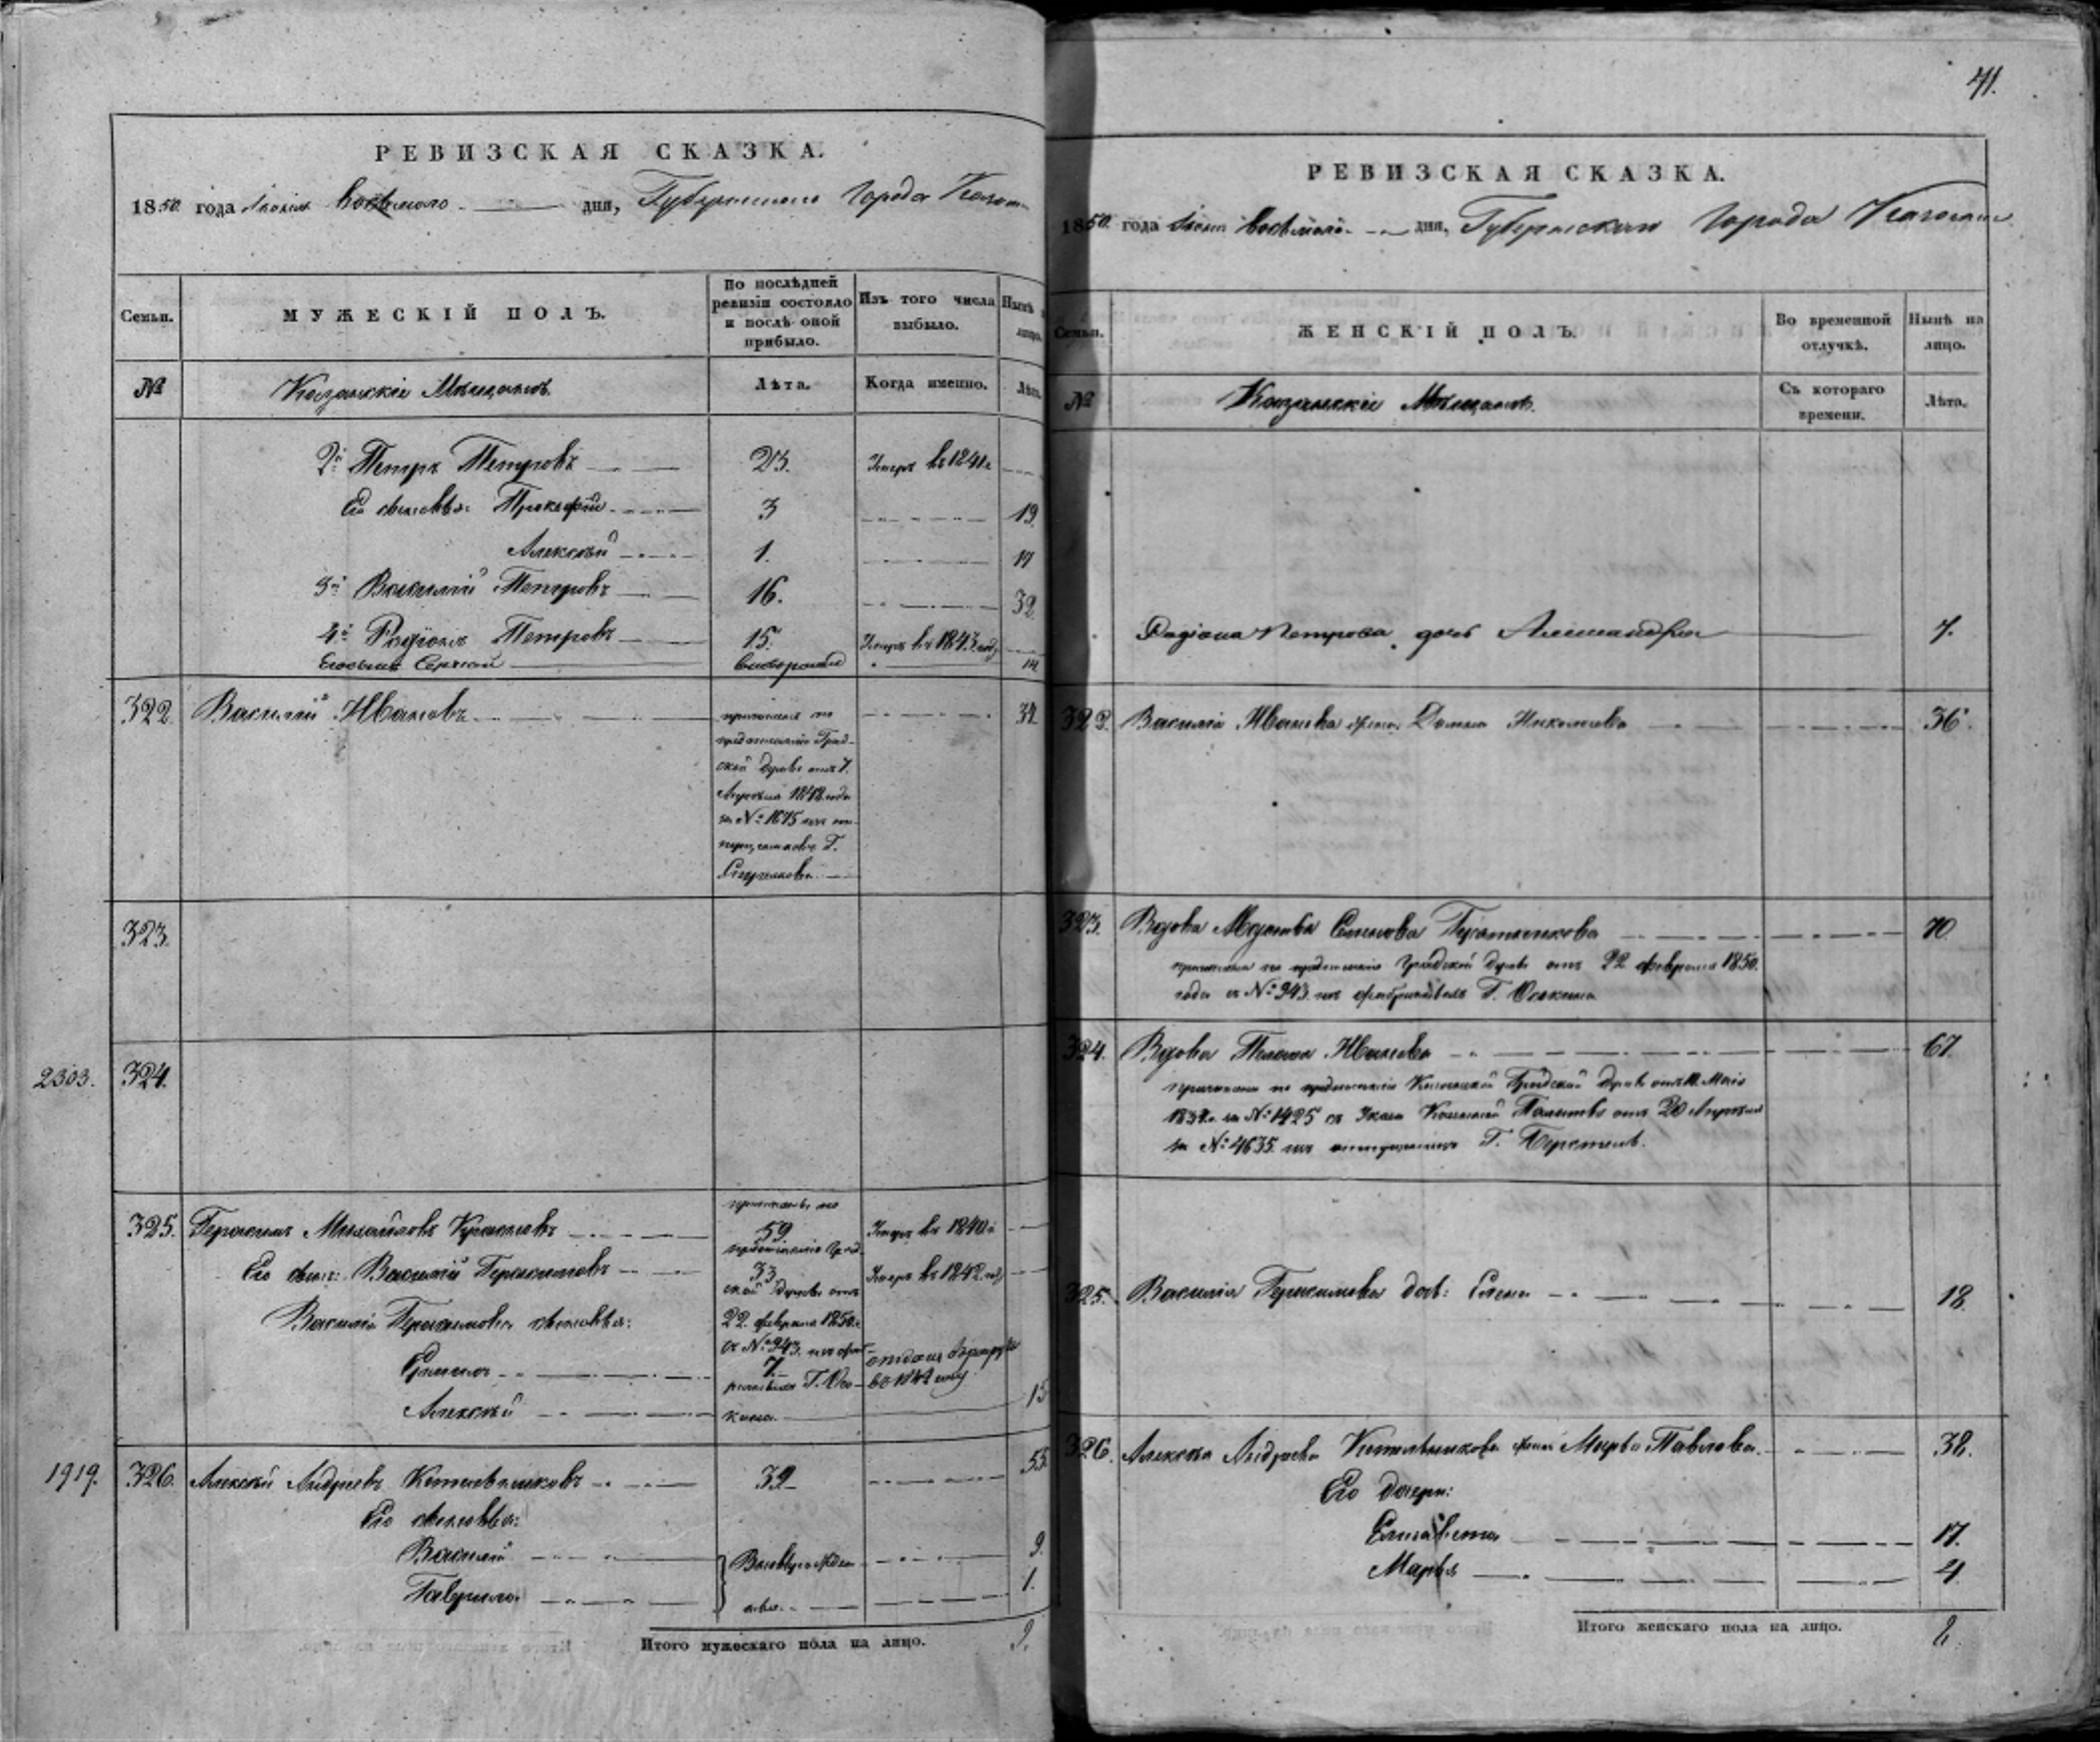 РЕВИЗСКАЯ СКАЗКА.
1850 года Июня восьмаго дня, Губернскаго Города Казани
Семьи.
МУЖЕСКІЙ ПОЛЪ.
По послѣдней ревизіи состояло и послѣ оной прибыло.
Изъ того числа выбыло.
Нынѣ на лицо.
№
Казанскіе Мѣщане
Лѣта.
Когда именно.
Лѣта.
2й Петръ Петровъ 23. Умеръ въ 1841
Его сыновья: Прокофій 3 19
Алексѣй 1. 17
3й Василій Петровъ 16. 32
4й Родіонъ Петровъ 15. Умеръ въ 1843 году
Его сынъ Сергей 14
322. Василій Ивановъ 34
причисленъ по
предписанію Град-
ской Думы отъ 7.
Апрѣля 1848 года
за № 1675 изъ от-
пущенниковъ Г.
323.
2303. 324.
325. Герасимъ Михайловъ 59 Умеръ въ 1840
Его сынъ: Василій Герасимовъ 33 Умеръ въ 1842 году
Василія Герасимова сыновья:
7. отданъ въ рекруты
Алексѣй 15
причисленъ по
предписанію Град-
ской Думы отъ
22. февраля 1850
за № 943. изъ фаб-
Г. Осо-
кина
1919. 326. Алексѣй Андреевъ Котельниковъ 39 55
Его сыновья:
Василій 9.
Гаврило 1.
Вновьрожден-
ные
Итого мужескаго пола на лицо. 9.
41.
РЕВИЗСКАЯ СКАЗКА.
1850 года Июня восьмаго дня, Губернскаго Города Казани
Семьи.
ЖЕНСКІЙ ПОЛЪ.
Во временной отлучкѣ.
Нынѣ на лицо.
№
Казанскіе Мѣщане
Съ котораго времени.
Лѣта.
Радіона Петрова дочь Александра 7.
322. Василія Иванова жена Домна Николаева 36.
323. Вдова Семенова 70
причислена по предписанію Градской Думы отъ 22 февраля 1850.
года за № 943. изъ Г. Осокина
324. Вдова Иванова 67.
причислена по предписанію Казанской Градской Думы отъ Маія
за № 1425 съ Указа Казенной Палаты отъ 20 Апрѣля
за № 4635. изъ Г.
325. Василія Герасимова дочь: Елена 18.
326. Алексѣя Андреева Котельникова жена Марья Павлова 38.
Его дочери:
Елизавета 17.
Марья 4
Итого женскаго пола на лицо. 8